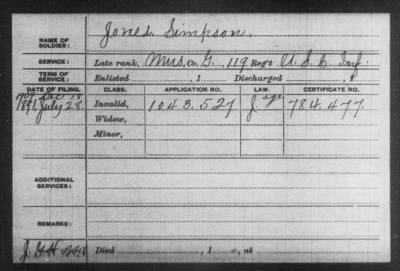 NAME OF SOLDIER: Jones, Simpson.
SERVICE: Late rank, Mus, Co. G, 119 Reg't U.S.C. Inf.
TERM OF SERVICE: Enlisted , 1 Discharged , 1
DATE OF FILING. CLASS. APPLICATION NO. LAW. CERTIFICATE NO.
Dec 18
1891 July 28. Invalid, 1043.527 age 784.477.
Widow,
Minor,
ADDITIONAL SERVICES:
REMARKS:
Died , 1 , at